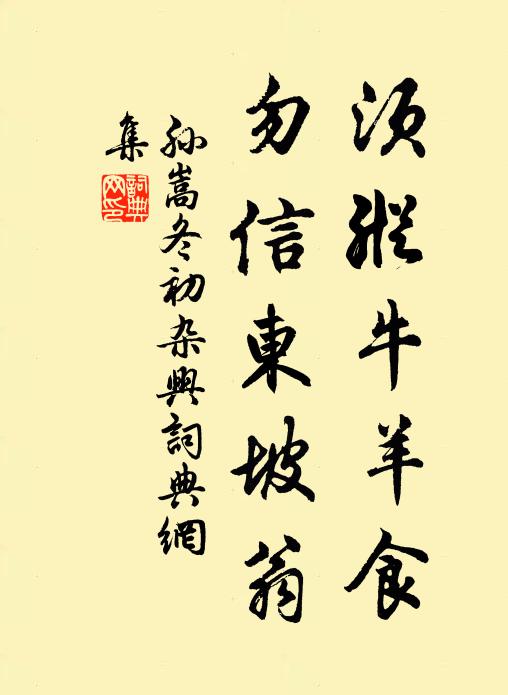 須縱牛羊食
勿信東坡翁
孫嵩冬初杂興詞典網
集
詞典
网印